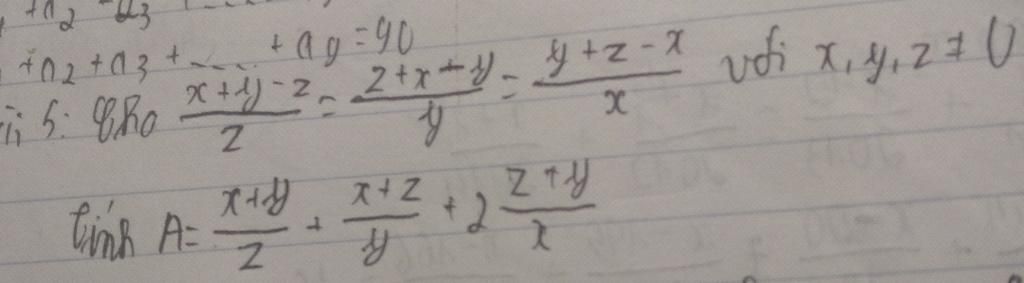 +a₂ a₃ .....
+a₂+a₃+.....+a₉=90
5: Cho (x+y-z)/z = (z+x-y)/y = (y+z-x)/x với x, y, z ≠ 0
Tính A = (x+y)/z + (x+z)/y + 2 (z+y)/x